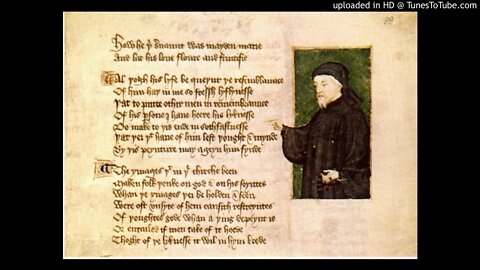 uploaded in HD @ TunesToTube.com
88
How he þi servaunt was mayden marie
And lat his love floure and fructifie
Al þogh his lyfe be queynt þe resemblaunce
Of him haþ in me so fressh lyflynesse
Þat to putte othir men in remembraunce
Of his persone I have heere his lyknesse
Do make to þis ende in sothfastnesse
Þat þei þt have of him lest þought & mynde
By þis peynture may ageyn him fynde
The ymages þt in þe chirche been
Maken folk þenke on god & on his seyntes
Whan þe ymages þei beholden & seen
Were oft unsyte of hem causith restreyntes
Of þoughtes gode whan a þing depeynt is
Or entailed if men take of it heede
Thoght of þe lyknesse it wil in hym brede